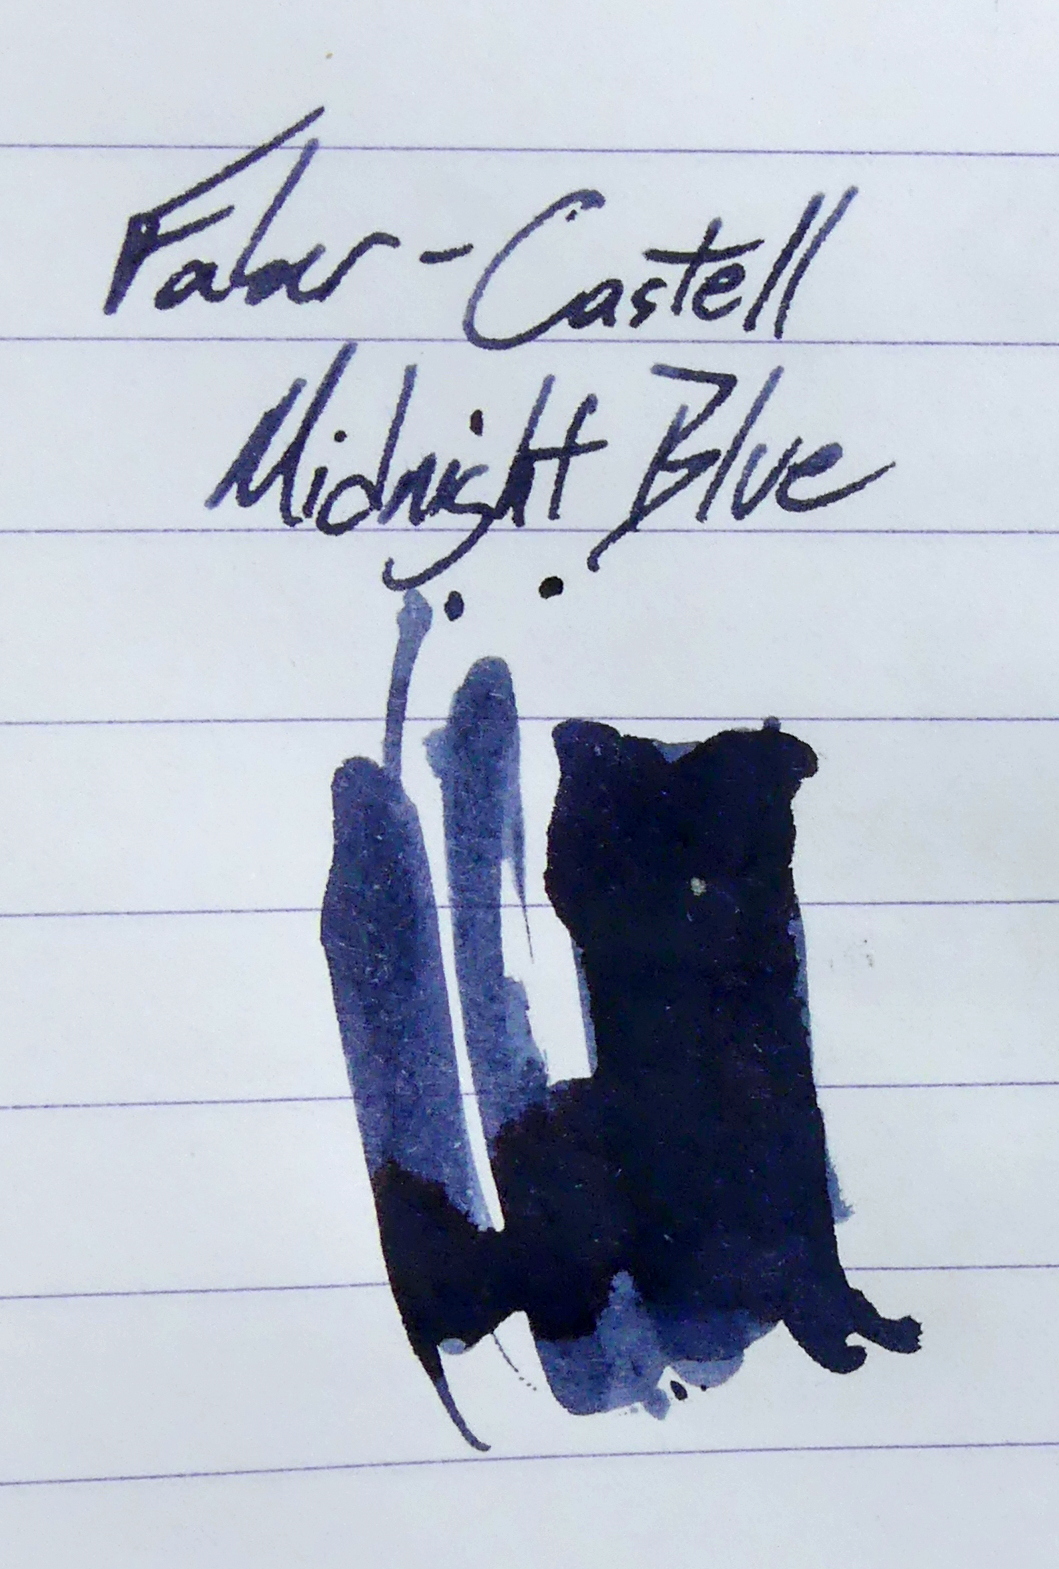 Faber-Castell
Midnight Blue